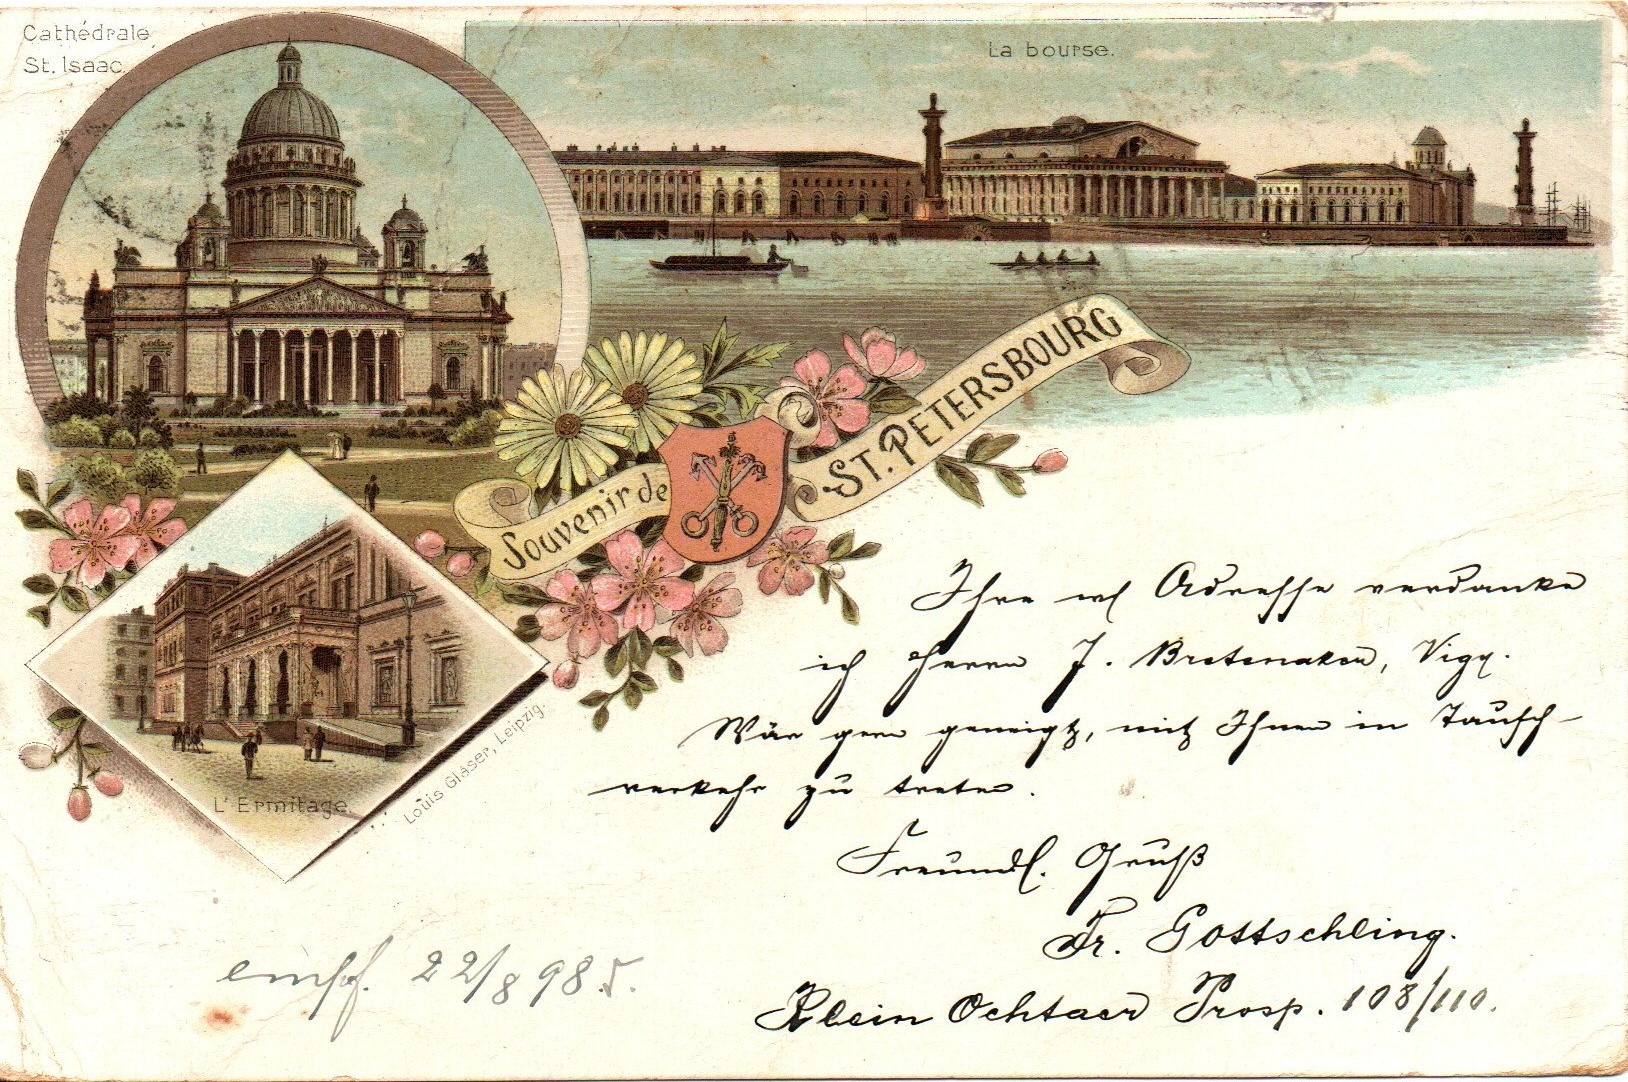 Cathédrale
St. Isaac.
La bourse.
Souvenir de
ST. PETERSBOURG
L'Ermitage.
Louis Gläser, Leipzig.
Ihre Adresse verdanke
ich Herrn J.
Wär gern geneigt, mit Ihnen in Tausch-
verkehr zu treten.
Freundl. Gruß
Fr. Gottschling.
Klein Ochtaer Prosp. 108/110.
empf. 22/8 98